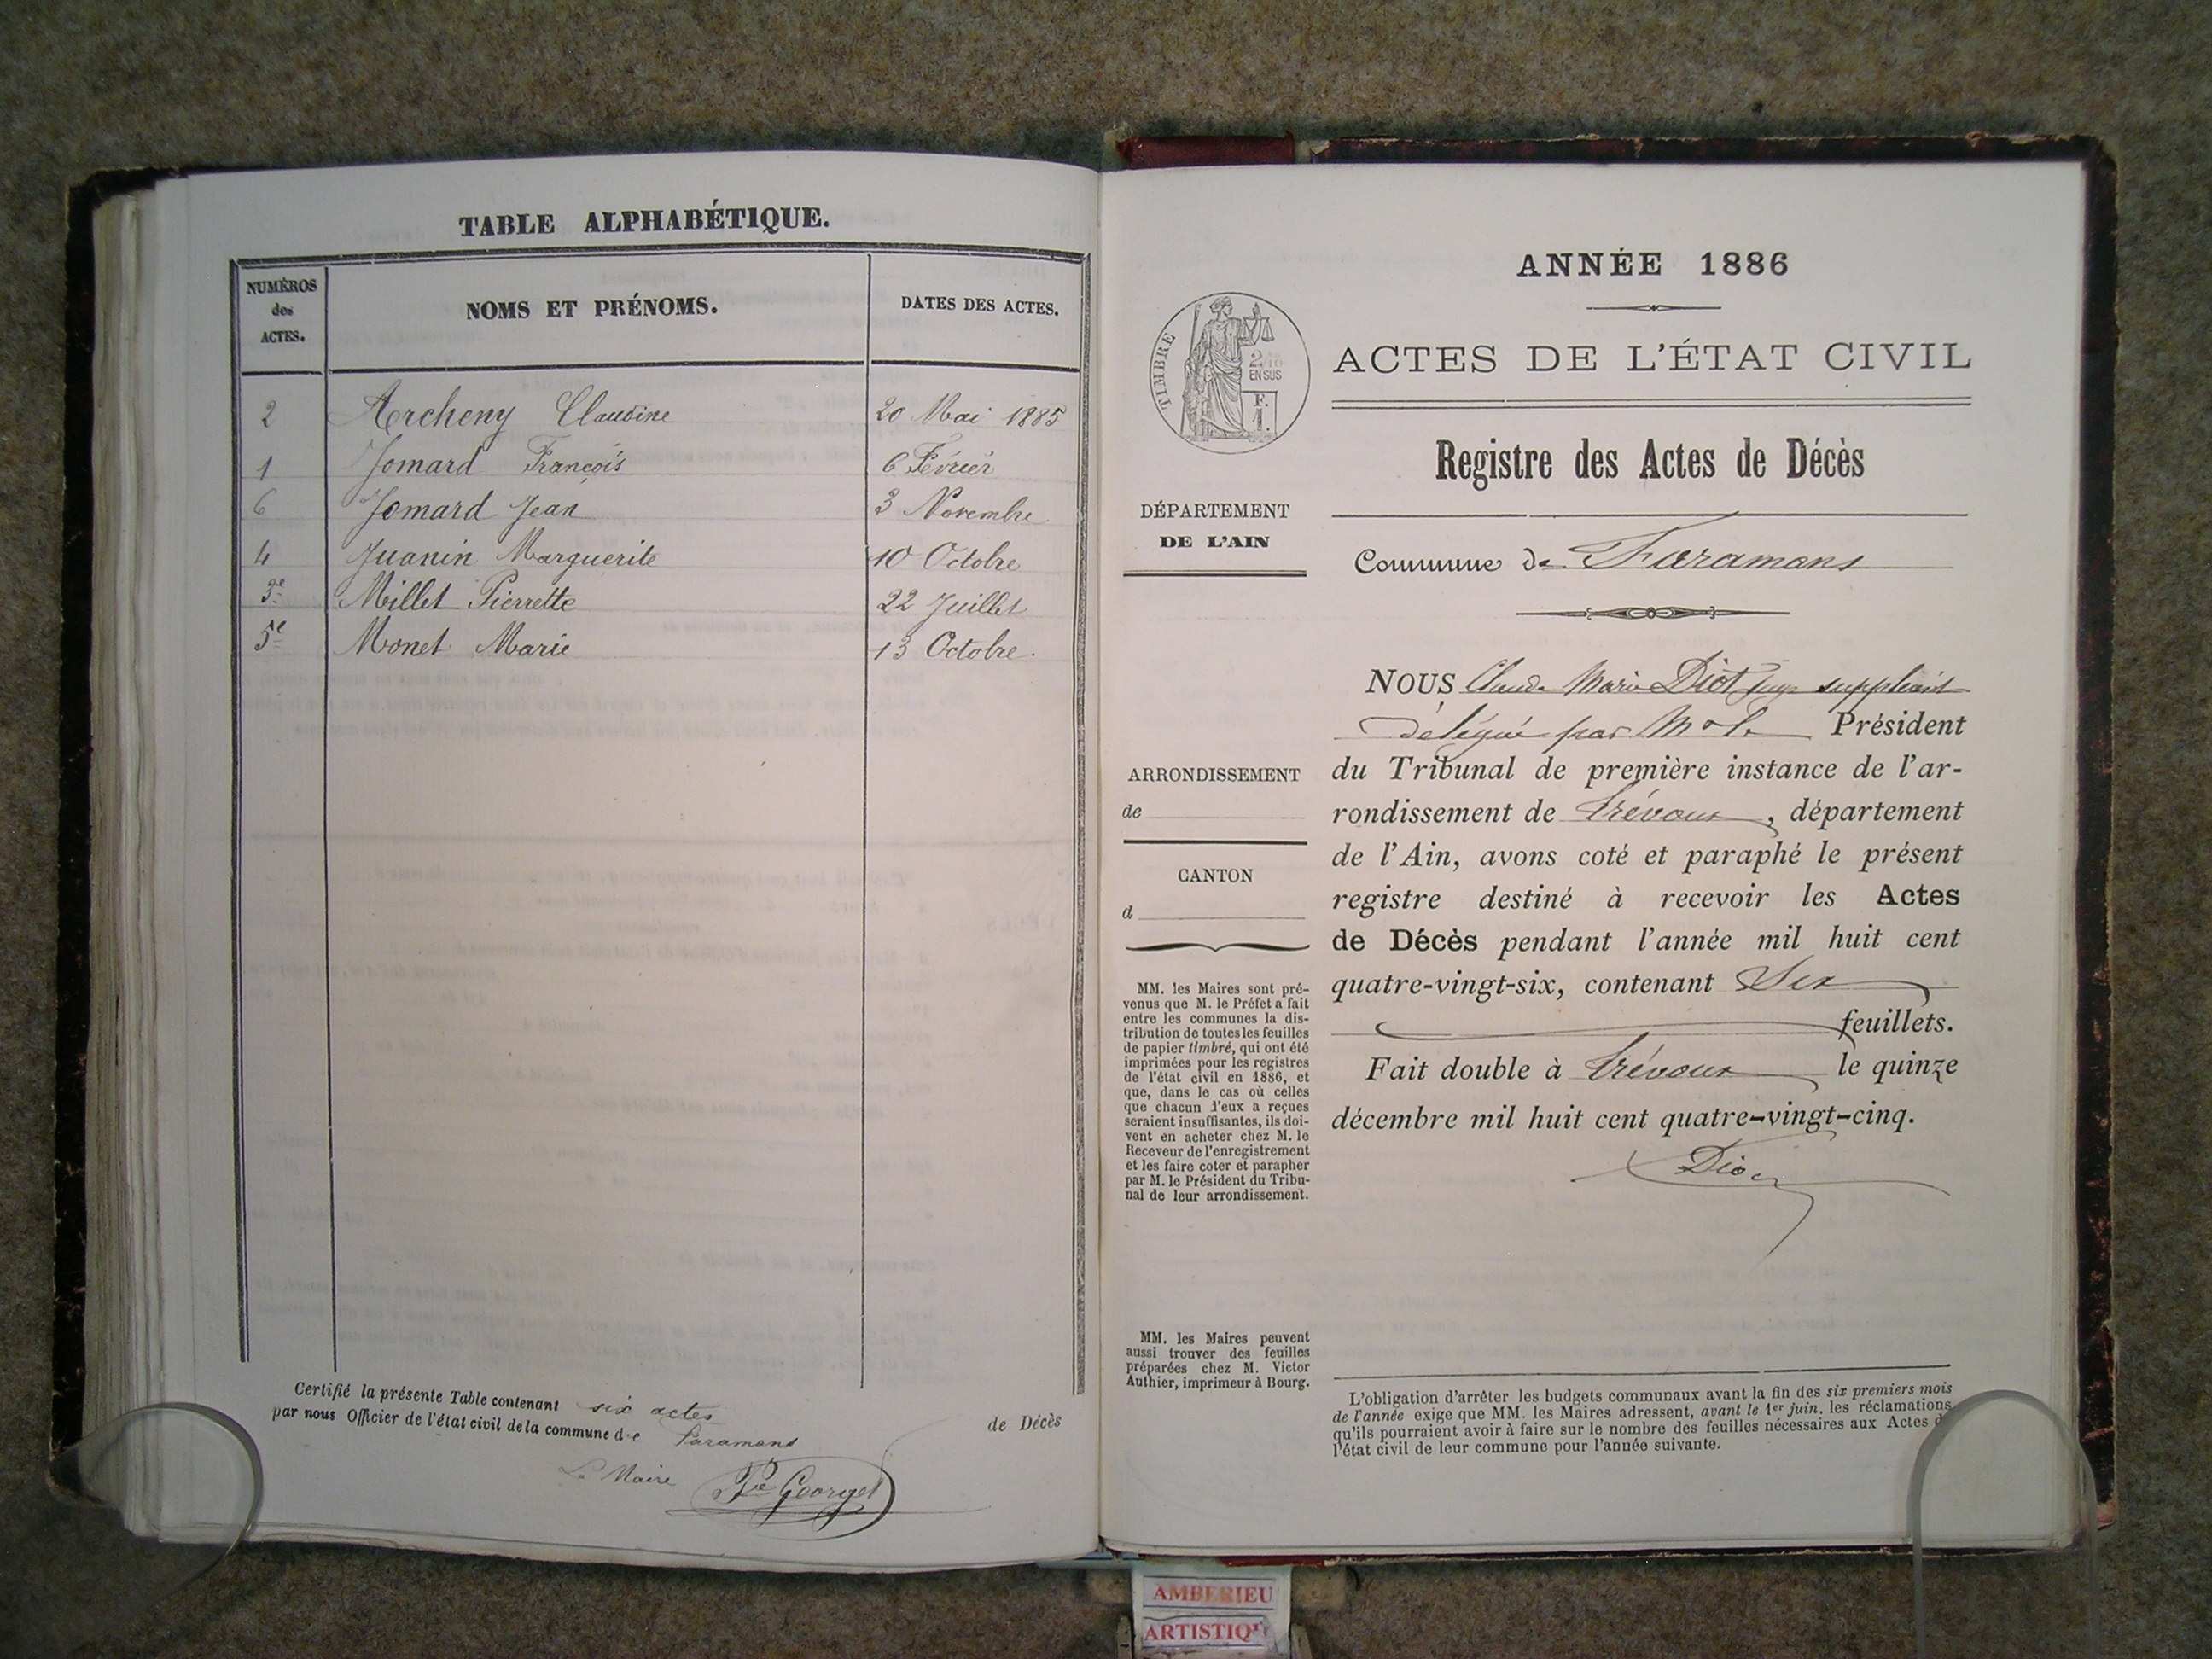 TABLE ALPHABÉTIQUE.
NUMÉROS des ACTES. NOMS ET PRÉNOMS. DATES DES ACTES.
2 Archeny Claudine 20 Mai 1885
1 Jomard François 6 Février
6 Jomard Jean 3 Novembre
4 Juanin Marguerite 10 Octobre
3e Millet Pierrette 22 Juillet
5e Monet Marie 13 Octobre.
Certifié la présente Table contenant six actes de Décès
par nous Officier de l'état civil de la commune de Faramans
Le Maire
Georget
ANNÉE 1886
ACTES DE L'ÉTAT CIVIL
TIMBRE
2/10
EN SUS
F.
1.
Registre des Actes de Décès
DÉPARTEMENT
DE L'AIN
Commune de Faramans
NOUS Claude Marie Diot juge suppléant
délégué par Mr le Président
du Tribunal de première instance de l'ar-
rondissement de Trévoux, département
de l'Ain, avons coté et paraphé le présent
registre destiné à recevoir les Actes
de Décès pendant l'année mil huit cent
quatre-vingt-six, contenant Six
feuillets.
Fait double à Trévoux le quinze
décembre mil huit cent quatre-vingt-cinq.
Diot
ARRONDISSEMENT
de
CANTON
d
MM. les Maires sont pré-
venus que M. le Préfet a fait
entre les communes la dis-
tribution de toutes les feuilles
de papier timbré, qui ont été
imprimées pour les registres
de l'état civil en 1886, et
que, dans le cas où celles
que chacun d'eux a reçues
seraient insuffisantes, ils doi-
vent en acheter chez M. le
Receveur de l'enregistrement
et les faire coter et parapher
par M. le Président du Tribu-
nal de leur arrondissement.
MM. les Maires peuvent
aussi trouver des feuilles
préparées chez M. Victor
Authier, imprimeur à Bourg.
L'obligation d'arrêter les budgets communaux avant la fin des six premiers mois
de l'année exige que MM. les Maires adressent, avant le 1er juin, les réclamations
qu'ils pourraient avoir à faire sur le nombre des feuilles nécessaires aux Actes d
l'état civil de leur commune pour l'année suivante.
AMBERIEU
ARTISTIQ